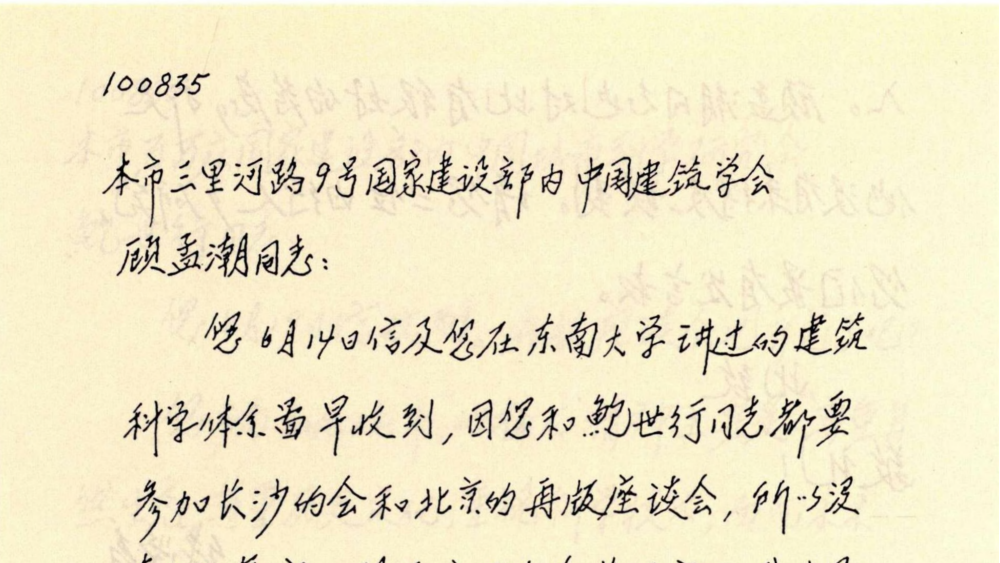 100835
本市三里河路9号国家建设部内中国建筑学会
顾孟潮同志：
您6月14日信及您在东南大学讲过的建筑
科学体系图早收到，因您和鲍世行同志都要
参加长沙的会和北京的再版座谈会，所以没